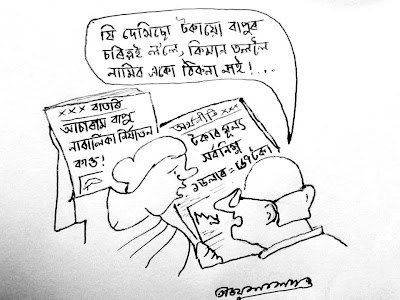 যি দেখিছো টকায়ো বাপুৰ
চৰিত্ৰই ল'লে, কিমান তললৈ
নামিব একো ঠিকনা নাই!...
××× বাতৰি
আচাৰাম বাপু
নাবালিকা নিৰ্যাতন
কাণ্ড!
অৰ্থনীতি ×××
টকাৰ মূল্য
সৰ্বনিম্ন
১ ডলাৰ = ৬৭ টকা